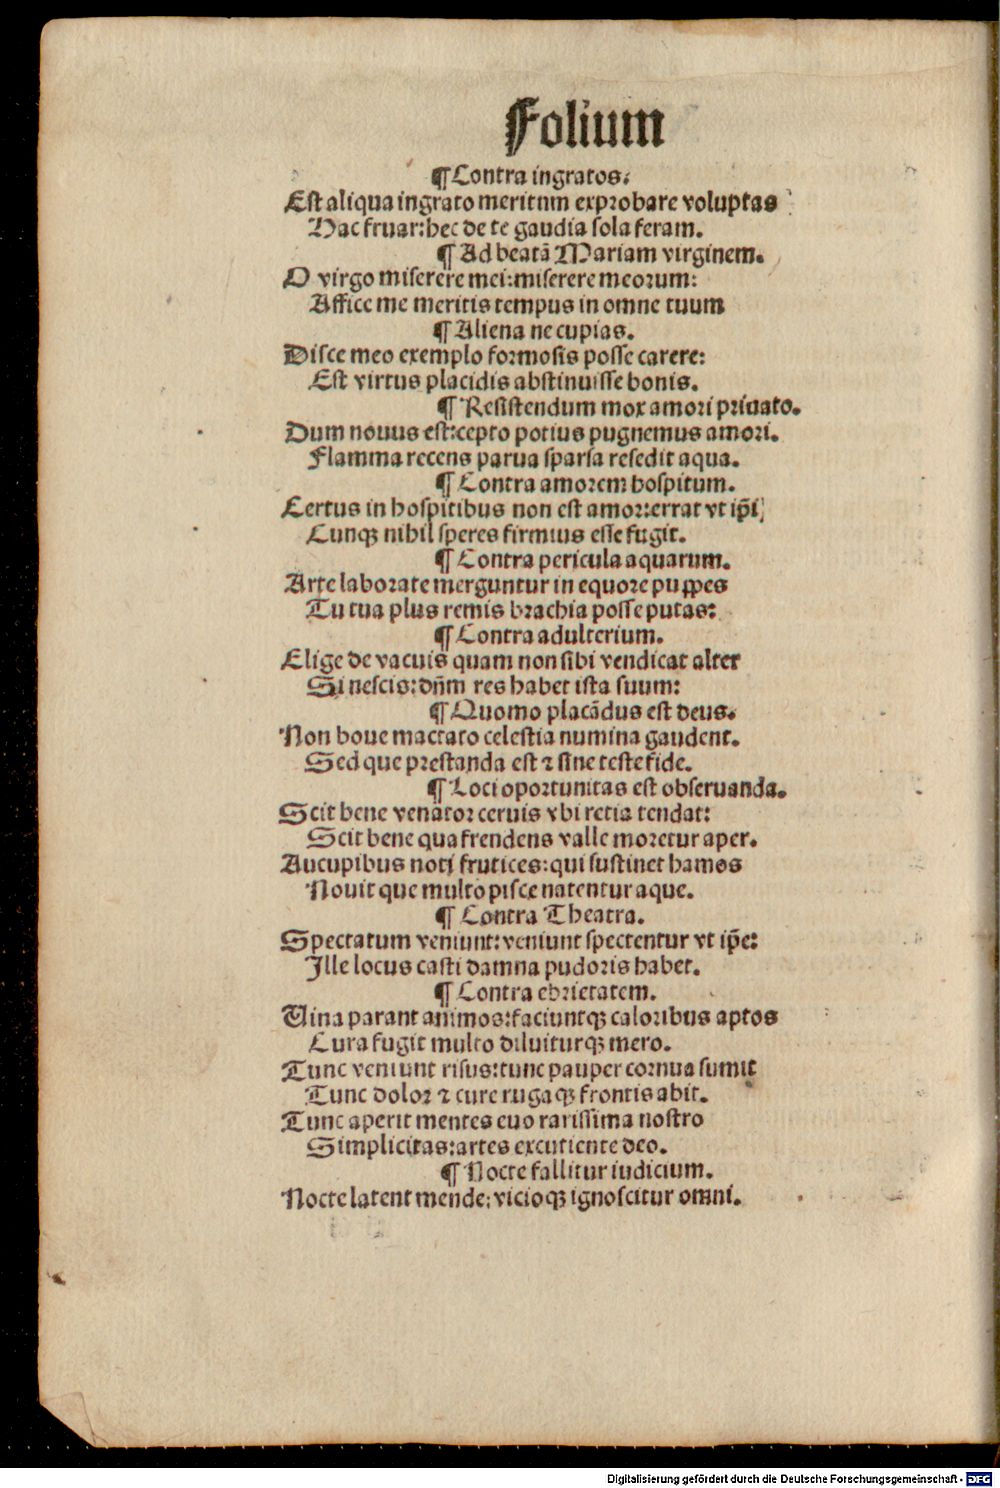 Folium
¶ Contra ingratos.
Est aliqua ingrato meritum exprobare voluptas
Hac fruar: hec de te gaudia sola feram.
¶ Ad beatã Mariam virginem.
O virgo miserere mei: miserere meorum:
Affice me meritis tempus in omne tuum
¶ Aliena ne cupias.
Disce meo exemplo formosis posse carere:
Est virtus placidis abstinuisse bonis.
¶ Resistendum mox amori priuato.
Dum nouus est: cepto potius pugnemus amori.
Flamma recens parua sparsa resedit aqua.
¶ Contra amorem hospitum.
Certus in hospitibus non est amor: errat vt ip̃i
Cunqꝫ nihil speres firmius esse fugit.
¶ Contra pericula aquarum.
Arte laborate merguntur in equore puppes
Tu tua plus remis brachia posse putas:
¶ Contra adulterium.
Elige de vacuis quam non sibi vendicat alter
Si nescis: dñm res habet ista suum:
¶ Quomo placãdus est deus.
Non boue mactato celestia numina gaudent.
Sed que prestanda est ⁊ sine teste fide.
¶ Loci oportunitas est obseruanda.
Scit bene venator ceruis vbi retia tendat:
Scit bene qua frendens valle moretur aper.
Aucupibus noti frutices: qui sustinet hamos
Nouit que multo pisce natentur aque.
¶ Contra Theatra.
Spectatum veniunt: veniunt spectentur vt ip̃e:
Ille locus casti damna pudoris habet.
¶ Contra ebrietatem.
Uina parant animos: faciuntqꝫ caloribus aptos
Cura fugit multo diluiturqꝫ mero.
Tunc veniunt risus: tunc pauper cornua sumit
Tunc dolor ⁊ cure rugaqꝫ frontis abit.
Tunc aperit mentes euo rarissima nostro
Simplicitas: artes excutiente deo.
¶ Nocte fallitur iudicium.
Nocte latent mende: vicioqꝫ ignoscitur omni.
Digitalisierung gefördert durch die Deutsche Forschungsgemeinschaft - DFG